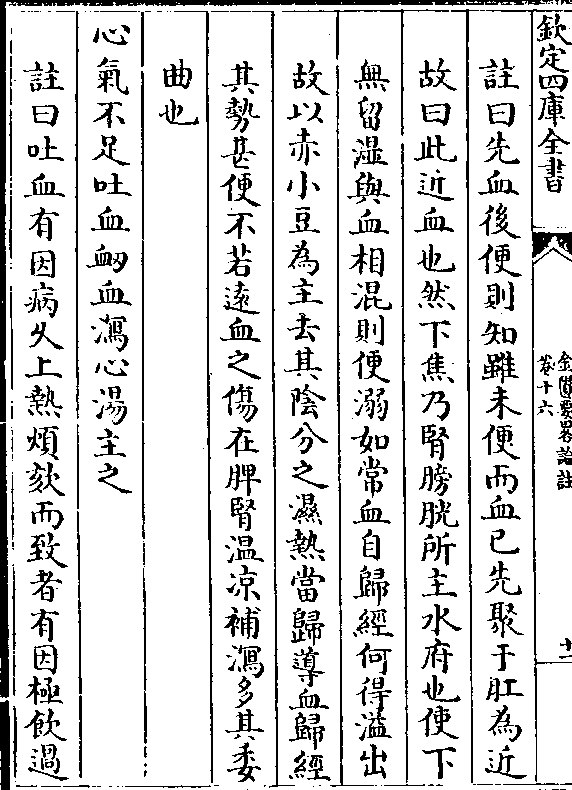 欽定四庫全書
金匱要畧論註
卷十六
十一
註曰先血後便則知雖未便而血已先聚于肛為近
故曰此近血也然下焦乃腎膀胱所主水府也使下
無留濕與血相混則便溺如常血自歸經何得溢出
故以赤小豆為主去其陰分之濕熱當歸導血歸經
其勢甚便不若遠血之傷在脾腎温凉補瀉多其委
曲也
心氣不足吐血衂血瀉心湯主之
註曰吐血有因病久上熱煩欬而致者有因極飲過